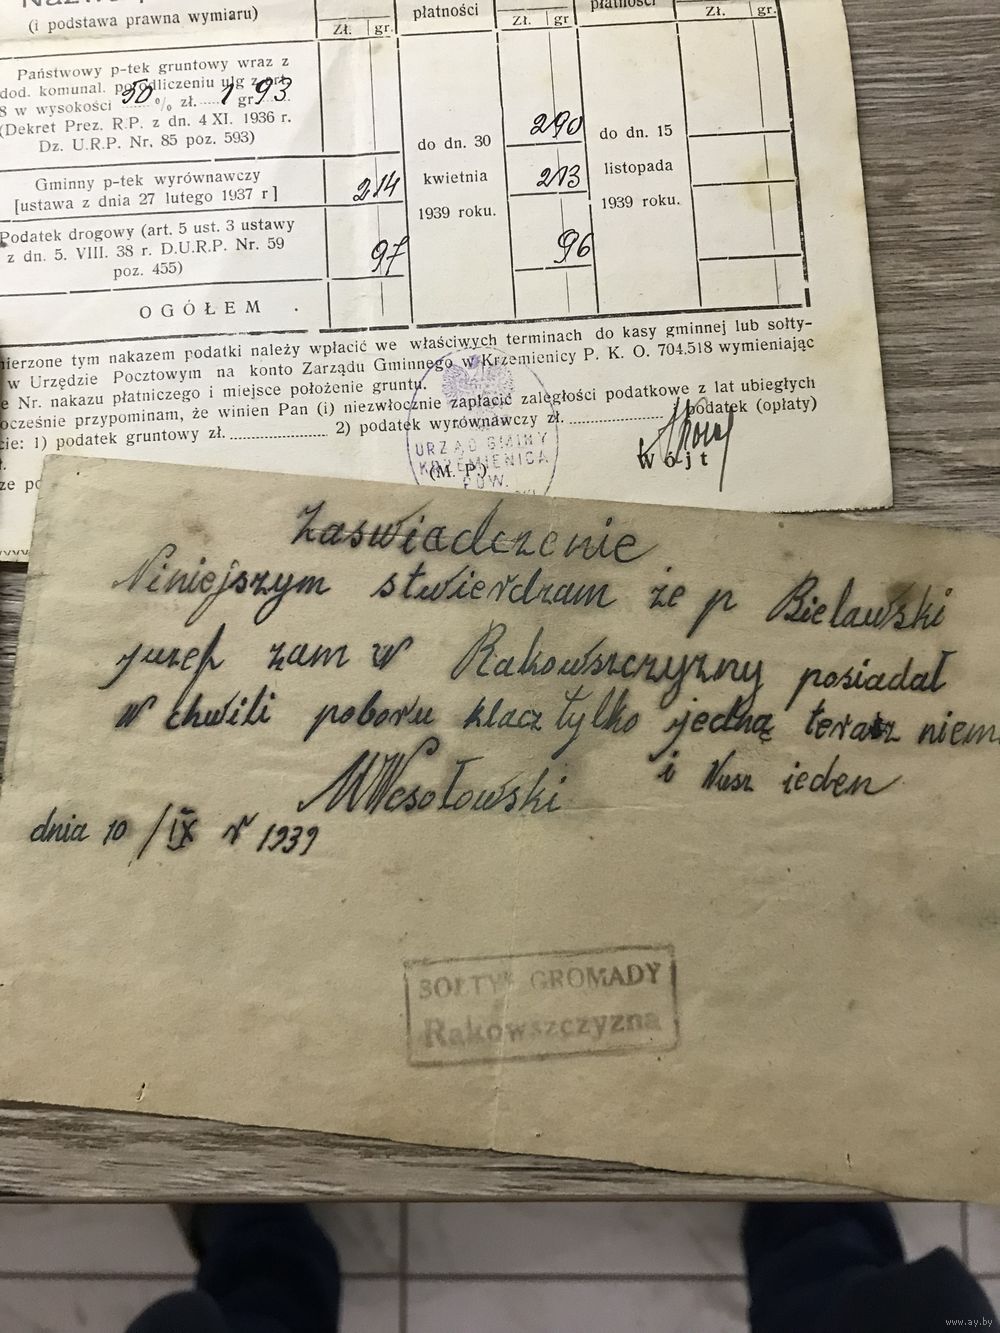 (i podstawa prawna wymiaru)
Zł. gr.
płatności
Zł. gr
płatności
Zł. gr.
Państwowy p-tek gruntowy wraz z
dod. komunal. po odliczeniu ulg z art.
8 w wysokości 50 % zł. 1 gr 93
(Dekret Prez. R.P. z dn. 4 XI. 1936 r.
Dz. U.R.P. Nr. 85 poz. 593)
290
Gminny p-tek wyrównawczy
[ustawa z dnia 27 lutego 1937 r]
214
213
Podatek drogowy (art. 5 ust. 3 ustawy
z dn. 5. VIII. 38 r. D.U.R.P. Nr. 59
poz. 455)
97
96
do dn. 30
kwietnia
1939 roku.
do dn. 15
listopada
1939 roku.
OGÓŁEM
mierzone tym nakazem podatki należy wpłacić we właściwych terminach do kasy gminnej lub sołty-
w Urzędzie Pocztowym na konto Zarządu Gminnego w Krzemienicy P. K. O. 704.518 wymieniając
e Nr. nakazu płatniczego i miejsce położenie gruntu.
ocześnie przypominam, że winien Pan (i) niezwłocznie zapłacić zaległości podatkowe z lat ubiegłych
cie: 1) podatek gruntowy zł. 2) podatek wyrównawczy zł. podatek (opłaty)
URZĄD GMINY
KRZEMIENICA
POW.
(M. P.)
Wójt
ze po
Zaswiadczenie
Niniejszym stwierdzam że p Bielawski
juzef zam w Rakowszczyzny posiadał
w chwili poboru klacz tylko jedną teraz niem
i Wusz ieden
MWesołowski
dnia 10/IX r 1939
SOŁTYS GROMADY
Rakowszczyzna
www.ay.by